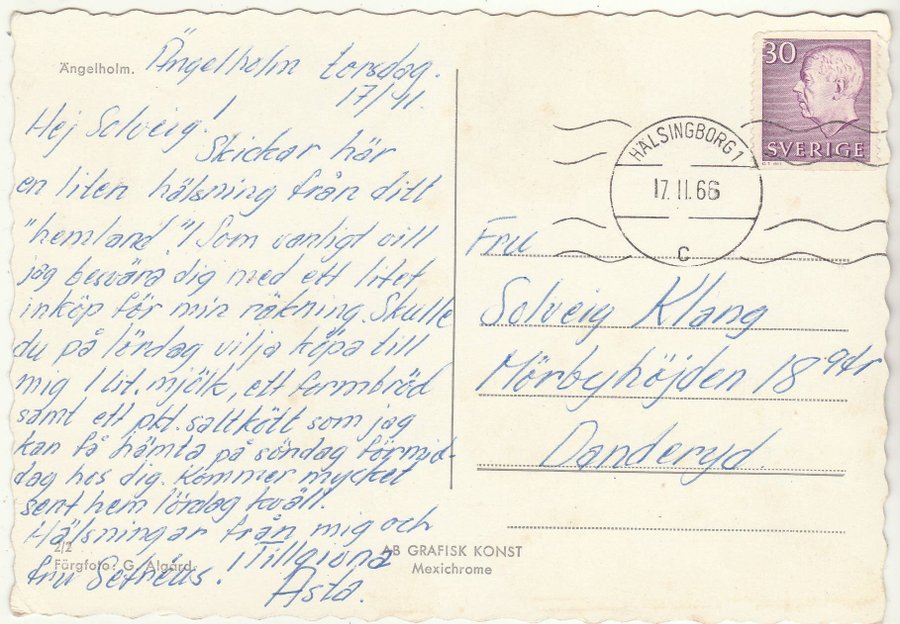 Ängelholm.
Ängelholm torsdag.
17/11.
Hej Solveig!
Skickar här
en liten hälsning från ditt
"hemland"! Som vanligt vill
jag besvära dig med ett litet
inköp för min räkning. Skulle
du på lördag vilja köpa till
mig 1 lit. mjölk, ett formbröd
samt ett pkt. saltkött som jag
kan få hämta på söndag förmid-
dag hos dig. Kommer mycket
sent hem lördag kväll.
Hälsningar från mig och
fru
Tillgivna
Asta.
2/2
Färgfoto: G. Algård.
AB GRAFISK KONST
Mexichrome
30
SVERIGE
HÄLSINGBORG 1
17.11.66
C
Fru
Solveig Klang
Mörbyhöjden 18
Danderyd.